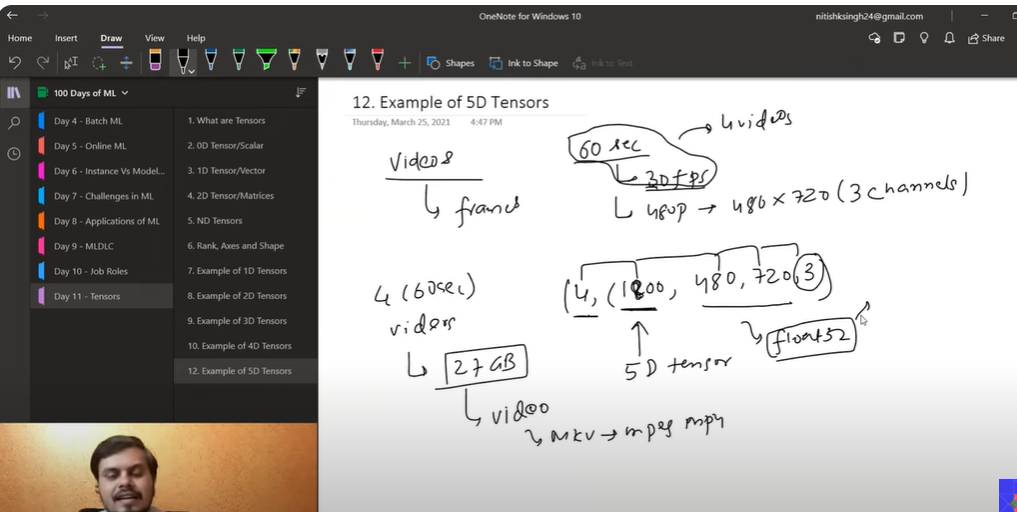 OneNote for Windows 10
nitishksingh24@gmail.com
Home Insert Draw View Help
Share
Shapes
Ink to Shape
Ink to Text
100 Days of ML
Day 4 - Batch ML
Day 5 - Online ML
Day 6 - Instance Vs Model...
Day 7 - Challenges in ML
Day 8 - Applications of ML
Day 9 - MLDLC
Day 10 - Job Roles
Day 11 - Tensors
1. What are Tensors
2. 0D Tensor/Scalar
3. 1D Tensor/Vector
4. 2D Tensor/Matrices
5. ND Tensors
6. Rank, Axes and Shape
7. Example of 1D Tensors
8. Example of 2D Tensors
9. Example of 3D Tensors
10. Example of 4D Tensors
12. Example of 5D Tensors
12. Example of 5D Tensors
Thursday, March 25, 2021 4:47 PM
Videos
frames
60 sec
4 videos
30 fps
480p → 480 x 720 (3 channels)
4 (60sec)
videos
27 GB
video
MKV → mpeg mp4
(4, (1800, 480, 720, 3)
float32
5D tensor